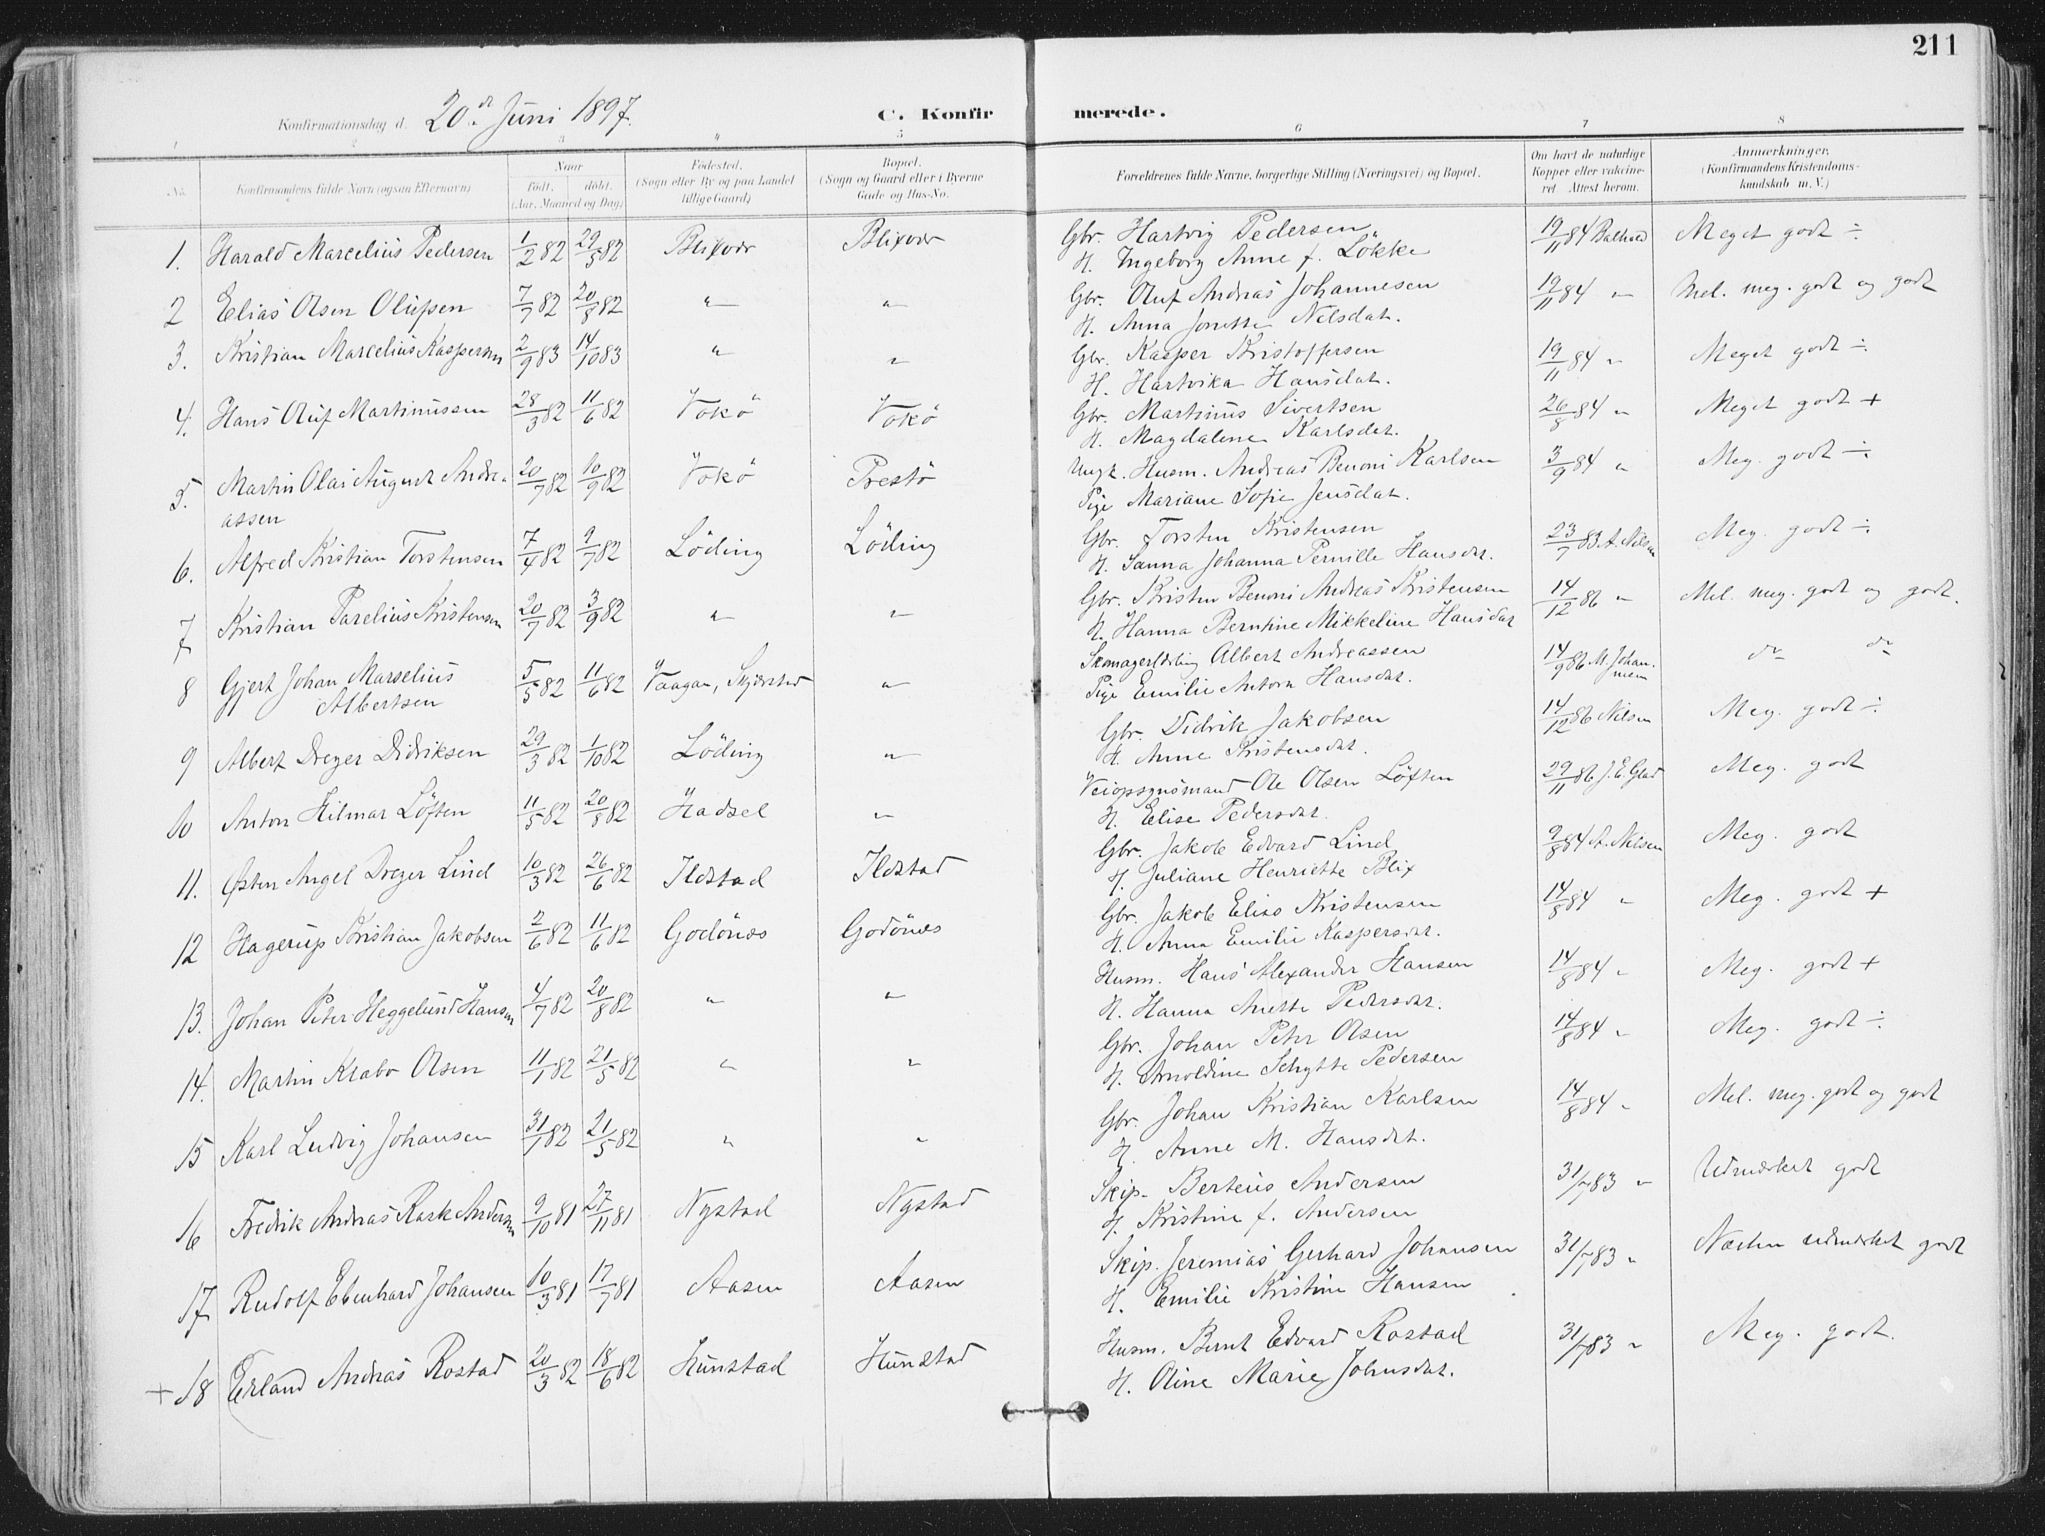 211
Konfirmationsdag d. 20de Juni 1897. C. Konfir merede.
1 2 3 4 5 6 7 8
No. Konfirmandens fulde Navn (ogsaa Efternavn) Naar født. døbt. (Aar, Maaned og Dag) Fødested. (Sogn eller By og paa Landet tillige Gaard) Bopæl. (Sogn og Gaard eller i Byerne Gade og Hus-No. Forældrenes fulde Navne, borgerlige Stilling (Næringsvei) og Bopæl. Om havt de naturlige Kopper eller vakcineret Attest herom. Anmærkninger. (Konfirmandens Kristendomskundskab m. V.)
1. Harald Marcelius Pedersen 1/2 82 29/5 82 Blixvær Blixvær Gbr. Hartvig Pedersen 19/11 84 Balhald Meget godt ÷
H. Ingeborg Anne f. Lökke
2 Elias Olsen Olufsen 7/7 82 20/8 82 " " Gbr. Oluf Andreas Johannesen 19/11 84 " Mel. meg. godt og godt
H. Anna Jonette Nilsdat.
3. Kristian Marcelius Kaspersen 2/9 83 14/10 83 " " Gbr. Kasper Kristoffersen 19/11 84 " Meget godt ÷
H. Hartvika Hansdat.
4. Hans Oluf Martinussen 28/3 82 11/6 82 Vokö Vokö Gbr. Martinus Sivertsen 26/8 84 " Meget godt +
H. Magdalene Karlsdat.
5. Martin Olai August Andreassen 20/7 82 10/9 82 Vokö Prestö Ungk. Husm. Andreas Benoni Karlsen 3/9 84 " Meg. godt ÷
Pige Mariane Sofie Jensdat.
6. Alfred Kristian Torstensen 7/4 82 9/7 82 Löding Löding Gbr. Torsten Kristensen 23/7 83 A. Nilsen Meg. godt ÷
H. Sanna Johanna Pernille Hansdat.
7 Kristian Parelius Kristensen 20/7 82 3/9 82 " " Gbr. Kristen Benoni Andreas Kristensen 14/12 86 " Mel. meg. godt og godt.
H. Hanna Berntine Mikkeline Hansdat
8 Gjert Johan Marselius Albertsen 5/5 82 11/6 82 Vaagan, Skjerstad " Skomagerlærling Albert Andreassen 14/9 86 M. Johannesen do do
Pige Emilie Antora Hansdat.
9 Albert Dreyer Didriksen 29/3 82 1/10 82 Löding " Gbr. Didrik Jakobsen 14/12 86 Nilsen Meg. godt ÷
H. Anne Kristensdat.
10 Anton Hilmar Löften 11/5 82 20/8 82 Hadsel " Veiopsynsmand Ole Olsen Löften 29/11 86 J. E. Glad Meg. godt
H. Elise Pedersdat.
11. Østen Angel Dreyer Lind 10/3 82 26/6 82 Ildstad Ildstad Gbr. Jakob Edvard Lind 9/8 84 A. Nilsen Meg. godt
H. Juliane Henriette Blix
12 Hagerup Kristian Jakobsen 2/6 82 11/6 82 Godönes Godönes Gbr. Jakob Elias Kristensen 14/8 84 " Meg. godt +
H. Anna Emilie Kaspersdat.
13. Johan Peter Heggelund Hansen 4/7 82 20/8 82 " " Husm. Hans Alexander Hansen 14/8 84 " Meg. godt +
H. Hanna Anette Pedersdat.
14. Martin Krabo Olsen 11/1 82 21/5 82 " " Gbr. Johan Peter Olsen 14/8 84 " Meg. godt ÷
H. Arnoldine Schytte Pedersen
15 Karl Ludvig Johansen 31/1 82 21/5 82 " " Gbr. Johan Kristian Karlsen 14/8 84 " Mel. meg. godt og godt
H. Anne M. Hansdat.
16 Fredrik Andreas Rask Andersen 9/10 81 27/11 81 Nystad Nystad Skip. Berteus Andersen 31/7 83 " Udmærket godt
H. Kristine f. Andersen
17 Rudolf Ebenhard Johansen 10/3 81 17/7 81 Aasen Aasen Skip. Jeremias Gerhard Johansen 31/7 83 " Næsten udmærket godt
H. Emilie Kristine Hansen
+ 18 Erland Andreas Rostad 20/3 82 18/6 82 Hunstad Hunstad Husm. Bernt Edvard Rostad 31/7 83 " Meg. godt.
H. Oline Marie Johnsdat.